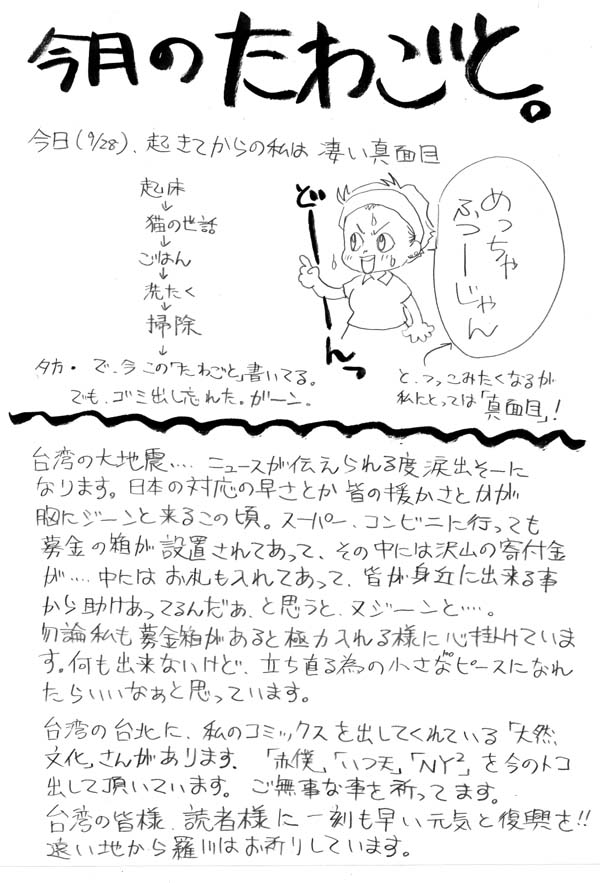 今月のたわごと。
今日(9/28)、起きてからの私は 凄い真面目
起床
↓
猫の世話
↓
ごはん
↓
洗たく
↓
掃除
↓
夕方・で、今この「たわごと」書いてる。
でも、ゴミ出し忘れた。ガーン。
どーーんっ
めっちゃ
ふつーじゃん
と、つっこみたくなるが
私にとっては「真面目」!
台湾の大地震‥‥ニュースが伝えられる度涙出そーに
なります。日本の対応の早さとか皆の援かさとかが
胸にジーンと来るこの頃。スーパー、コンビニに行っても
募金の箱が設置されてあって、その中には沢山の寄付金
が‥‥中にはお札も入れてあって、皆が身近に出来る事
から助けあってるんだぁ、と思うと、又ジーンと‥‥。
勿論私も募金箱があると極力入れる様に心掛けていま
す。何も出来ないけど、立ち直る為の小さなピースになれ
たらいいなぁと思っています。
台湾の台北に、私のコミックスを出してくれている「大然
文化」さんがあります。「赤僕」「いつ天」「NY²」を今のトコ
出して頂いています。ご無事な事を祈ってます。
台湾の皆様、読者様に一刻も早い元気と復興を!!
遠い地から羅川はお祈りしています。